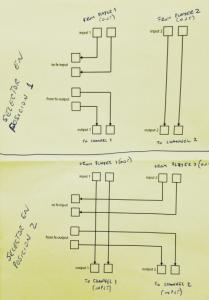 FROM PLAYER 1
(OUT)
FROM PLAYER 2
(OUT)
input 1
input 2
to fx input
from fx output
output 1
output 2
TO CHANNEL 1
TO CHANNEL 2
SELECTOR EN
POSICION 1
FROM PLAYER 1 (OUT)
FROM PLAYER 2 (OUT)
input 1
input 2
to fx input
from fx output
output 1
output 2
TO CHANNEL 1
(INPUT)
TO CHANNEL 2
(INPUT)
SELECTOR EN
POSICION 2